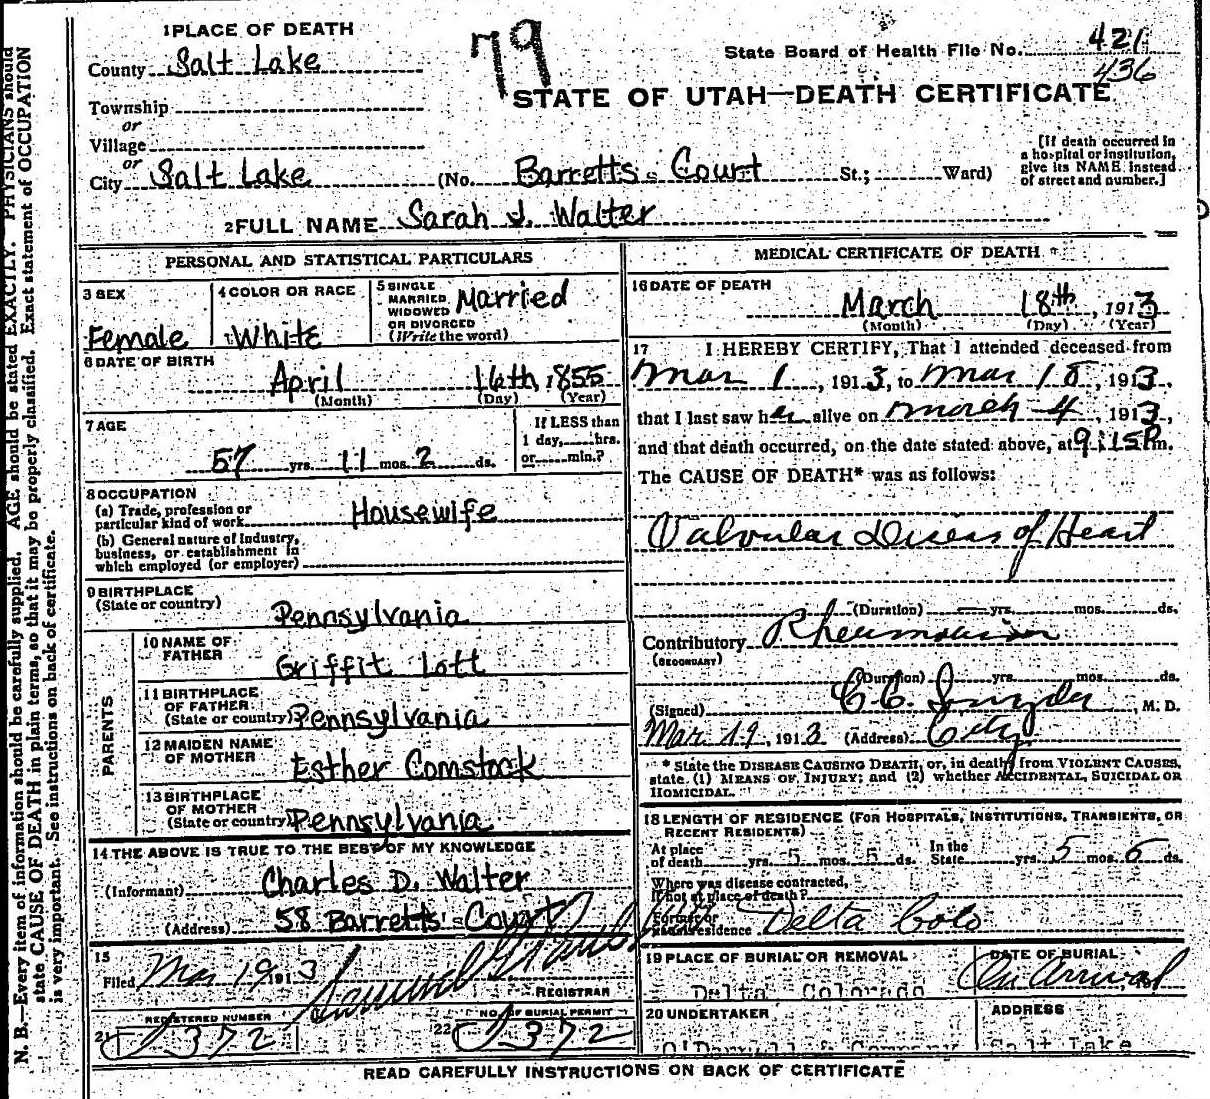 1 PLACE OF DEATH
79
State Board of Health File No. 421
436
County Salt Lake
STATE OF UTAH—DEATH CERTIFICATE
Township
or
Village
or
City Salt Lake (No. Barretts Court St.; Ward)
[If death occurred in a hospital or institution, give its NAME instead of street and number.]
2 FULL NAME Sarah J. Walter
PERSONAL AND STATISTICAL PARTICULARS
3 SEX
Female
4 COLOR OR RACE
White
5 SINGLE
MARRIED
WIDOWED
OR DIVORCED
(Write the word)
Married
6 DATE OF BIRTH
April 16th, 1855
(Month) (Day) (Year)
7 AGE
57 yrs. 11 mos. 2 ds.
If LESS than
1 day, hrs.
or min.?
8 OCCUPATION
(a) Trade, profession or
particular kind of work Housewife
(b) General nature of industry,
business, or establishment in
which employed (or employer)
9 BIRTHPLACE
(State or country)
Pennsylvania
PARENTS
10 NAME OF
FATHER
Griffit Lott
11 BIRTHPLACE
OF FATHER
(State or country) Pennsylvania
12 MAIDEN NAME
OF MOTHER
Esther Comstock
13 BIRTHPLACE
OF MOTHER
(State or country) Pennsylvania
14 THE ABOVE IS TRUE TO THE BEST OF MY KNOWLEDGE
(Informant) Charles D. Walter
(Address) 58 Barretts Court
15
Filed Mar 19 1913 Samuel G. Paul
REGISTRAR
REGISTERED NUMBER
21 372
NO. OF BURIAL PERMIT
22 372
MEDICAL CERTIFICATE OF DEATH
16 DATE OF DEATH
March 18th, 1913
(Month) (Day) (Year)
17 I HEREBY CERTIFY, That I attended deceased from
Mar 1, 1913, to Mar 18, 1913,
that I last saw her alive on March 4, 1913,
and that death occurred, on the date stated above, at 9:15 P.m.
The CAUSE OF DEATH* was as follows:
Valvular Diseas of Heart
(Duration) yrs. mos. ds.
Contributory Rheumatism
(SECONDARY)
(Duration) yrs. mos. ds.
(Signed) C.C. Snyder, M. D.
Mar 19, 1913 (Address) City
* State the DISEASE CAUSING DEATH, or, in deaths from VIOLENT CAUSES,
state (1) MEANS OF INJURY; and (2) whether ACCIDENTAL, SUICIDAL OR
HOMICIDAL.
18 LENGTH OF RESIDENCE (FOR HOSPITALS, INSTITUTIONS, TRANSIENTS, OR
RECENT RESIDENTS)
At place
of death yrs. 5 mos. 5 ds. In the
State yrs. 5 mos. 6 ds.
Where was disease contracted,
if not at place of death?
Former or
usual residence Delta Colo
19 PLACE OF BURIAL OR REMOVAL
Delta, Colorado
DATE OF BURIAL
On Arrival
20 UNDERTAKER
O'Donnell & Company
ADDRESS
Salt Lake
READ CAREFULLY INSTRUCTIONS ON BACK OF CERTIFICATE
N. B.—Every item of information should be carefully supplied. AGE should be stated EXACTLY. PHYSICIANS should
state CAUSE OF DEATH in plain terms, so that it may be properly classified. Exact statement of OCCUPATION
is very important. See instructions on back of certificate.